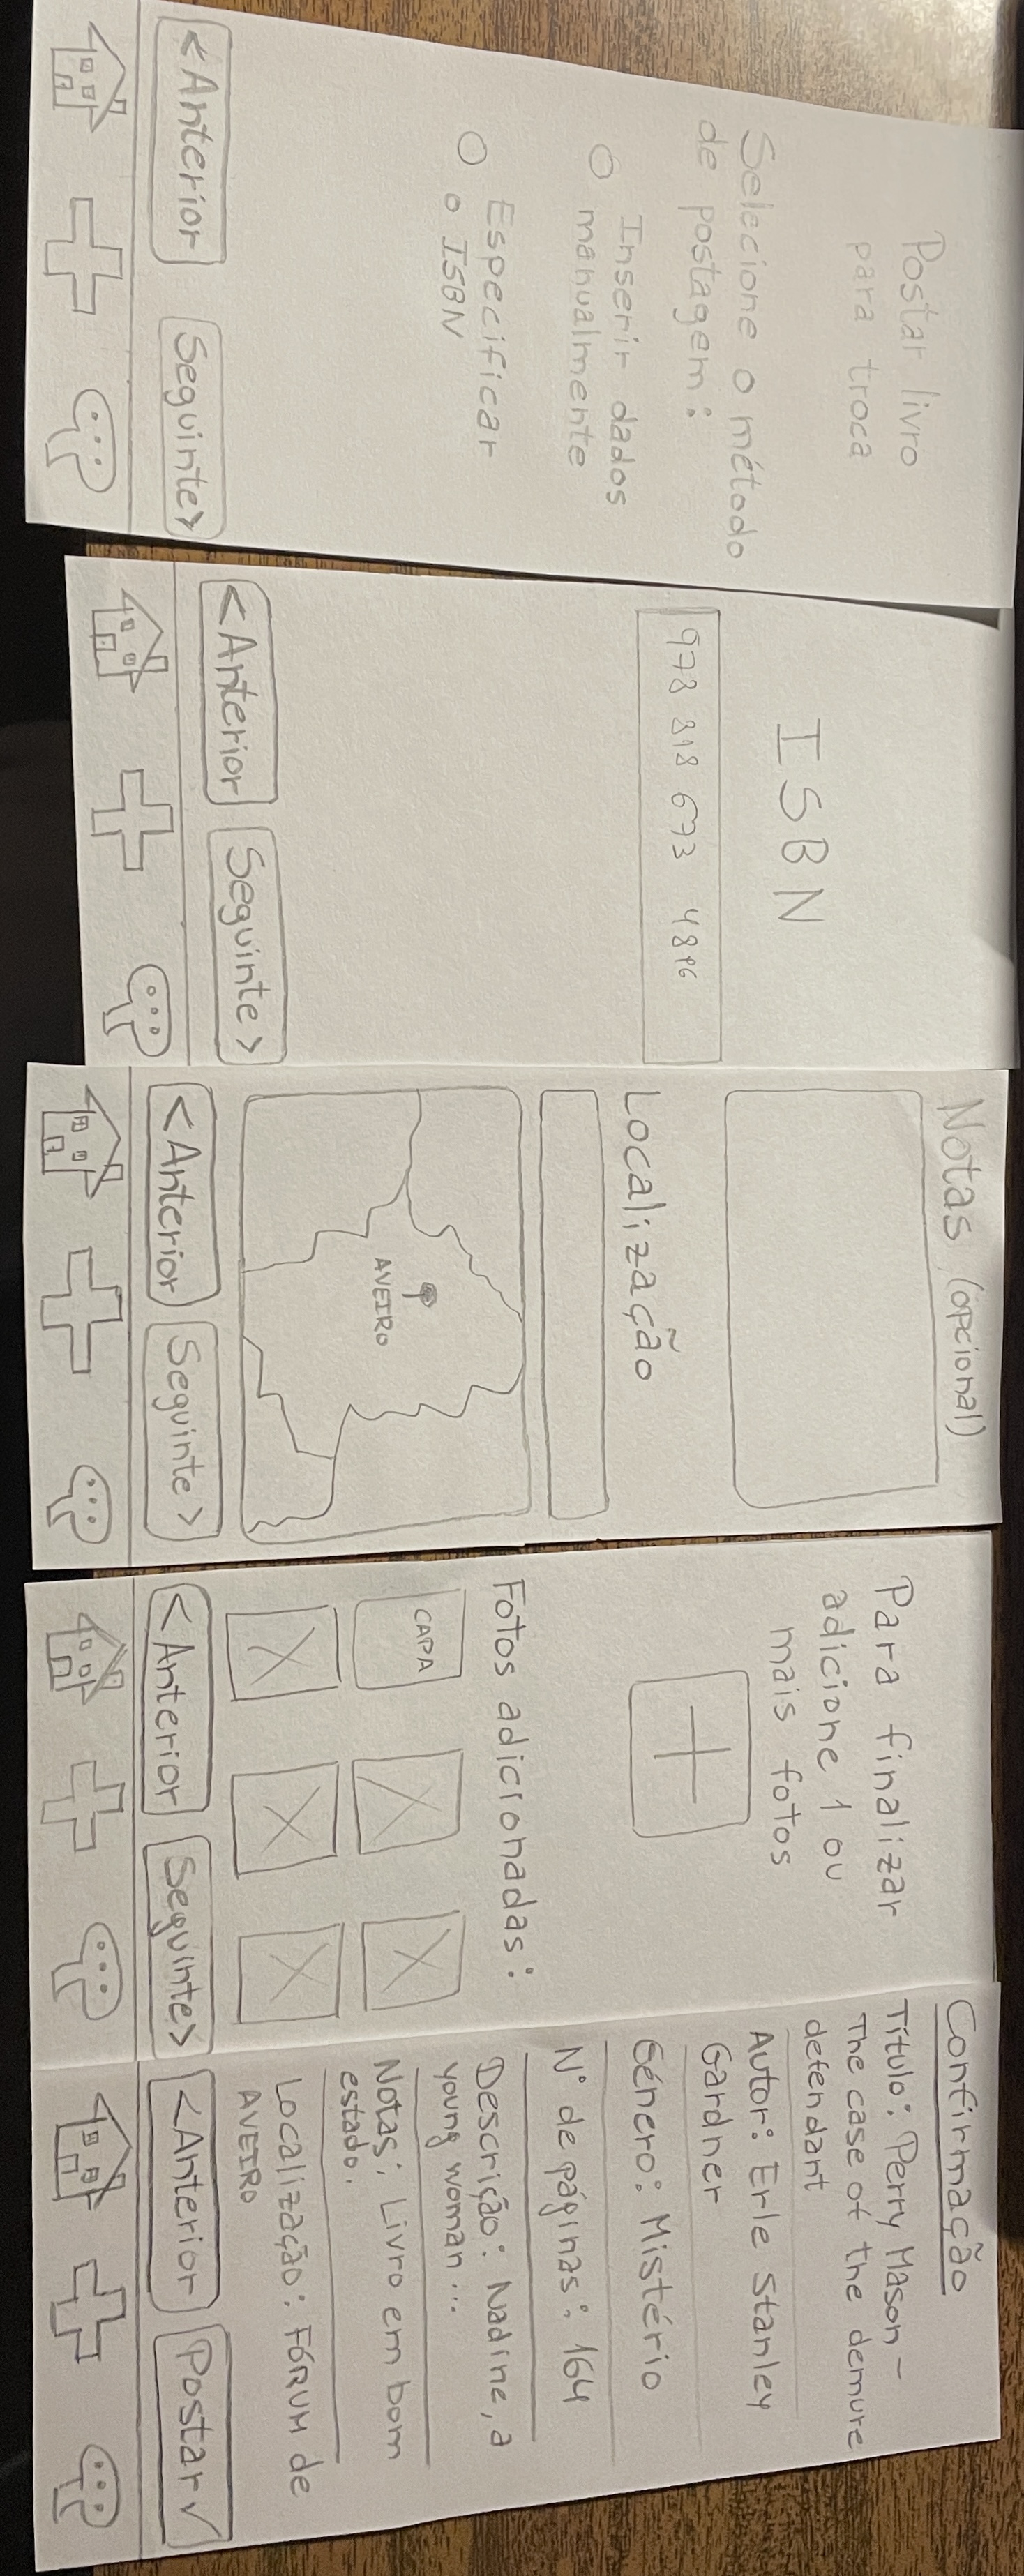 Postar livro
para troca
Selecione o método
de postagem:
Inserir dados
manualmente
Especificar
o ISBN
<Anterior
Seguinte>
ISBN
978 818 673 4896
<Anterior
Seguinte>
Notas (opcional)
Localização
AVEIRO
<Anterior
Seguinte>
Para finalizar
adicione 1 ou
mais fotos
Fotos adicionadas:
CAPA
<Anterior
Seguinte>
Confirmação
Título: Perry Mason -
The case of the demure
defendant
Autor: Erle Stanley
Gardner
Género: Mistério
Nº de páginas: 164
Descrição: Nadine, a
young woman...
Notas: Livro em bom
estado.
Localização: FÓRUM de
AVEIRO
<Anterior
Postar ✓